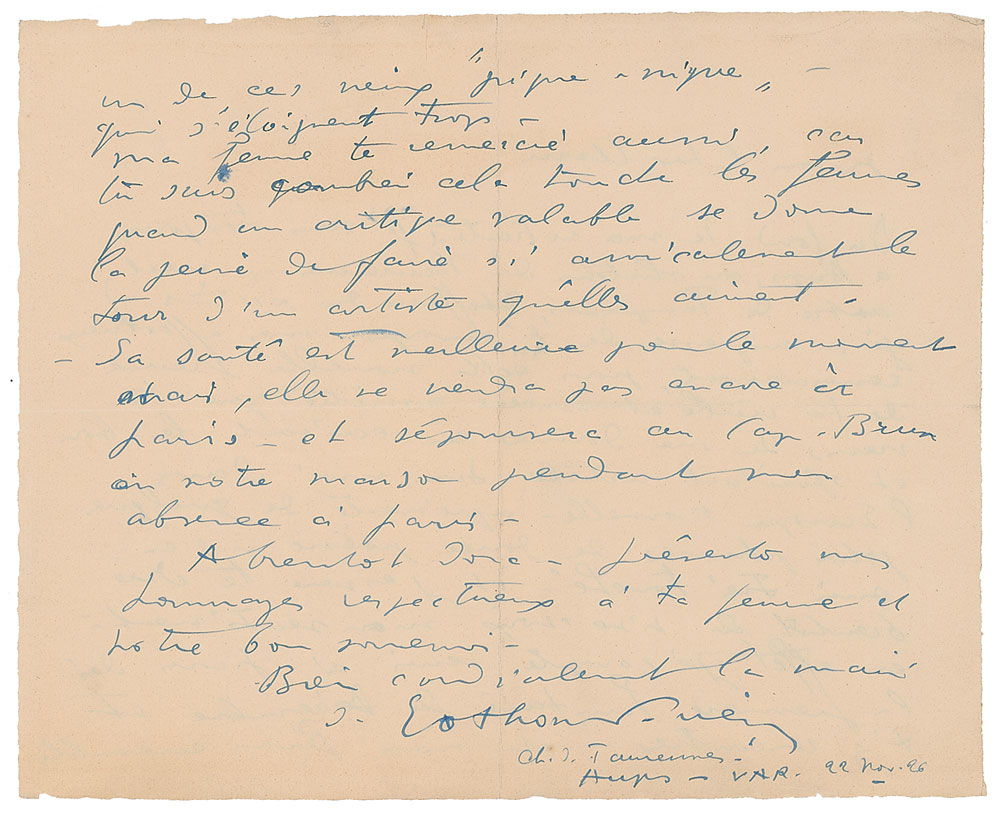 un de ces vieux "pique-nique" -
qui s'éloignent trop -
ma femme te remercie aussi, car
tu sais combien cela touche les femmes
quand un critique valable se donne
la peine de faire si amicalement le
tour d'un artiste qu'elles aiment -
- Sa santé est meilleure pour le moment
mais, elle ne viendra pas encore à
paris - et séjournera au Cap-Brun
en notre maison pendant mon
absence à paris -
A bientot donc - présente mes
hommages respectueux à ta femme et
notre bon souvenir -
Bien cordialement la main
Othon
Ch. d. Taurennes -
Aups - VAR. 22 Nov. 26